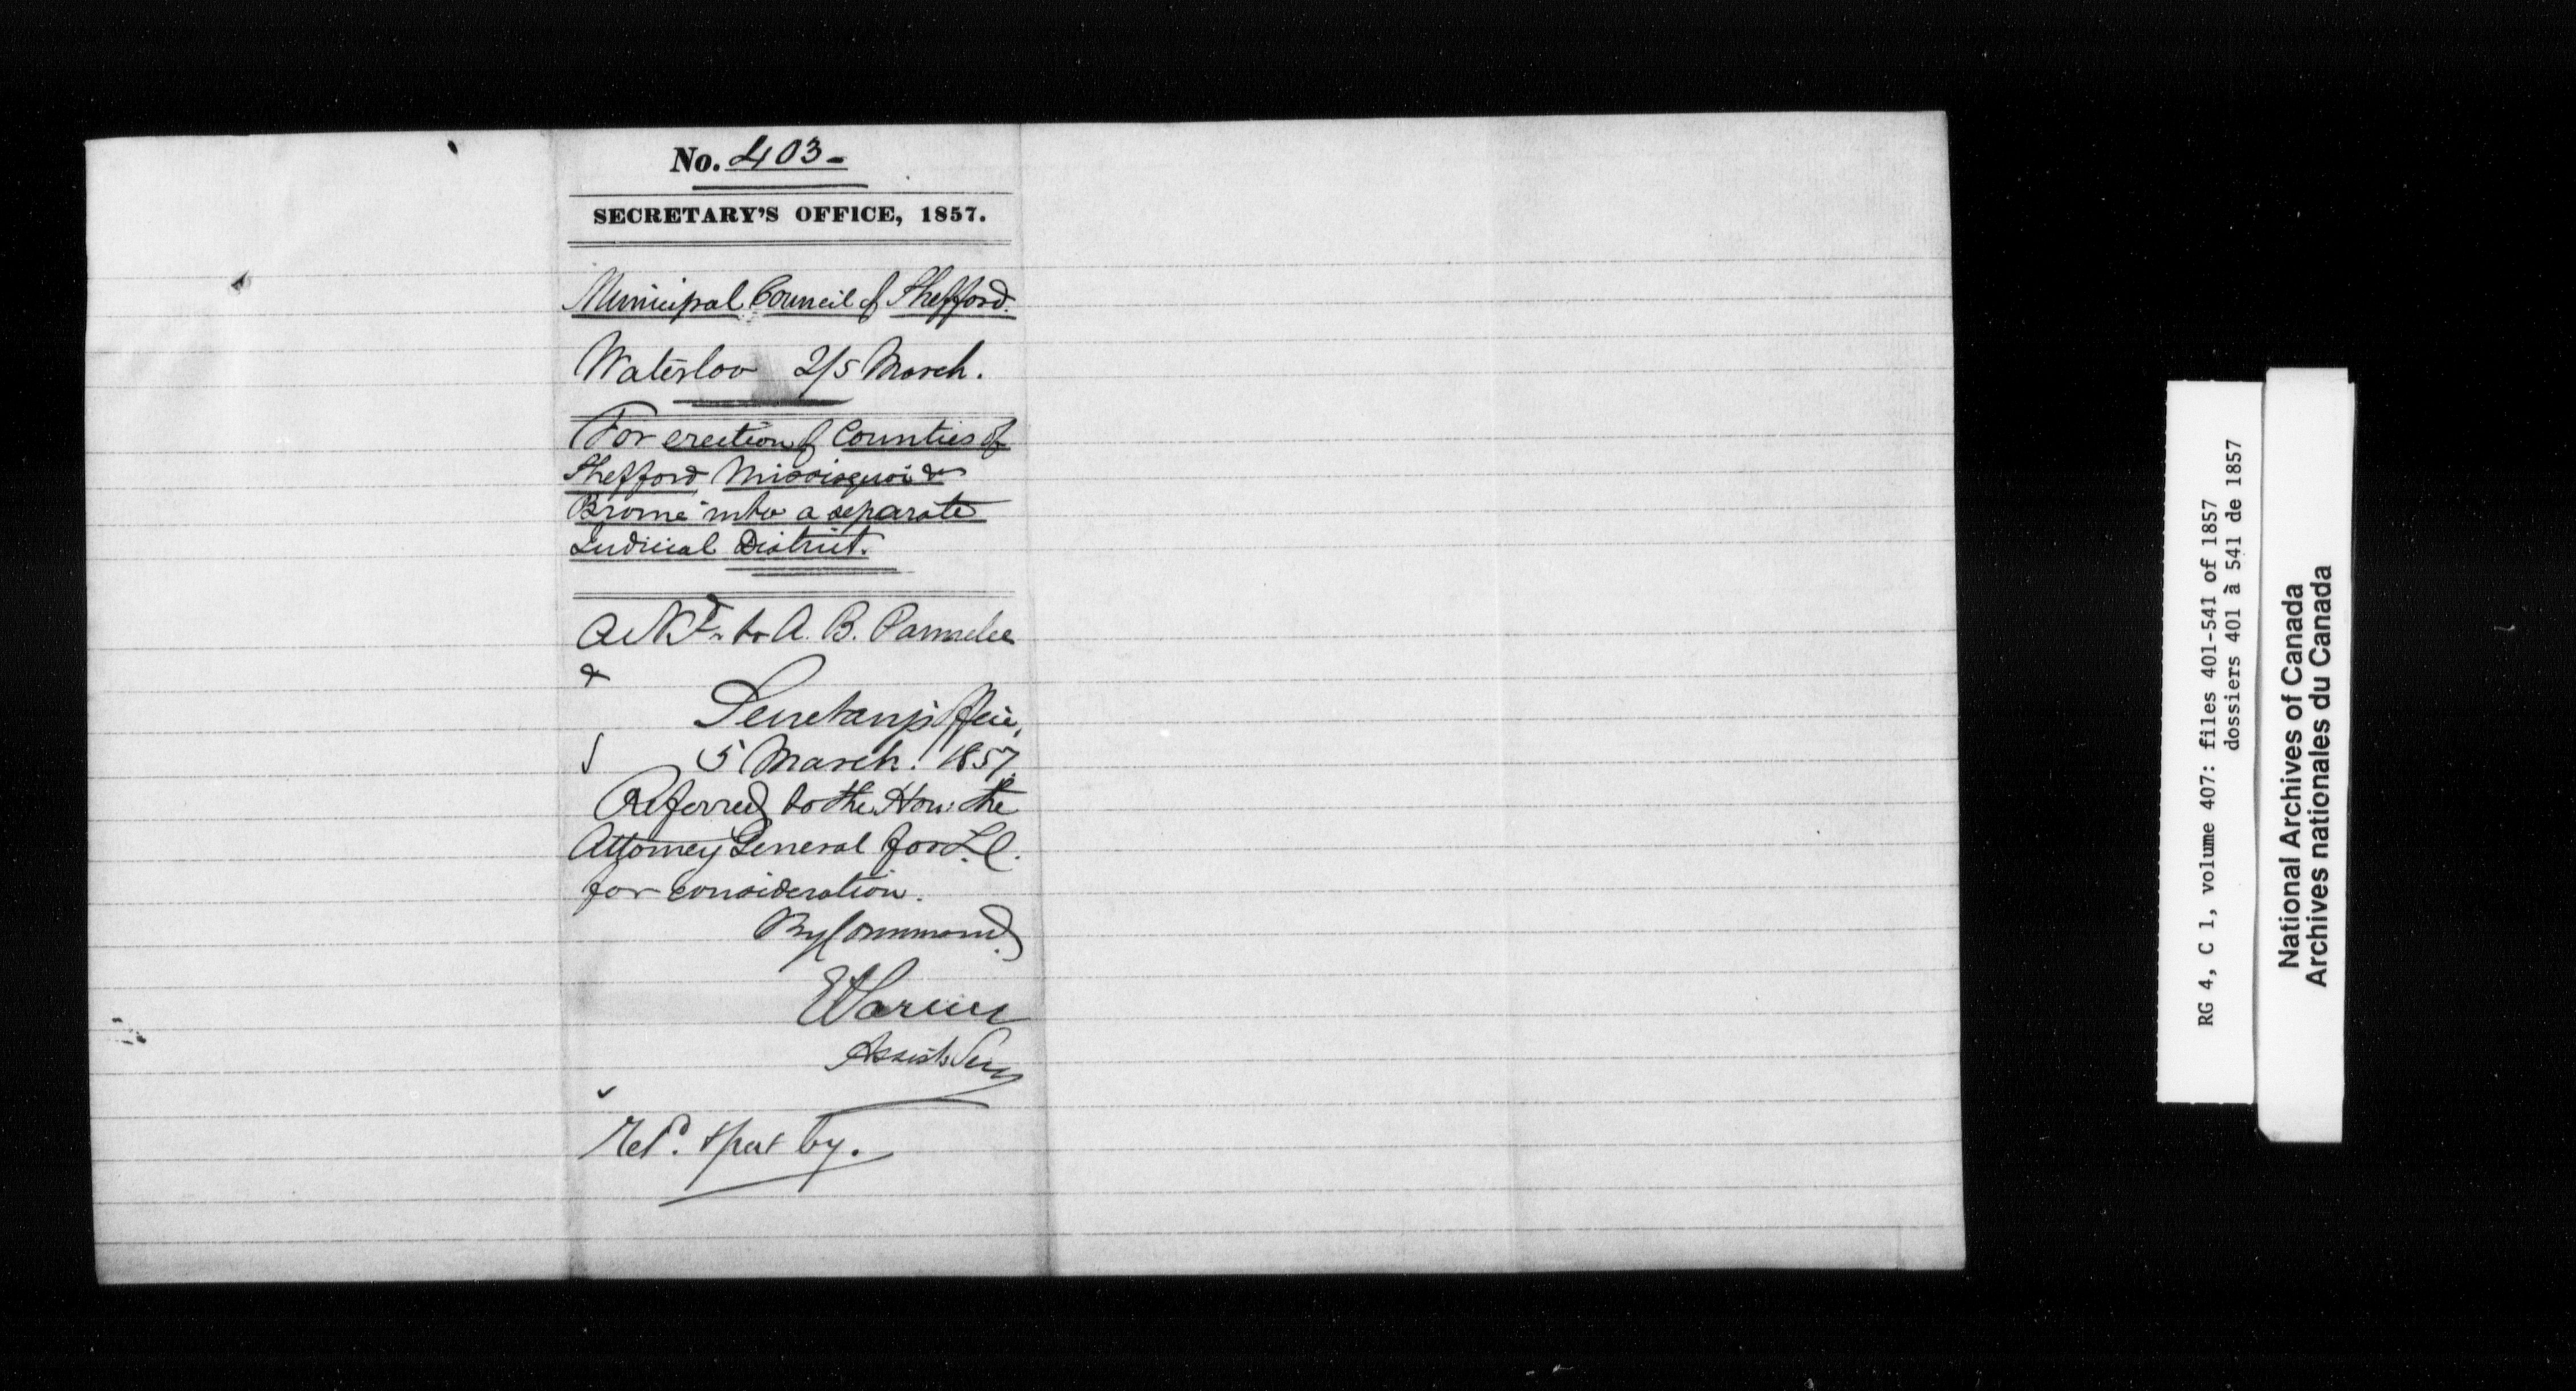 No. 403-
SECRETARY'S OFFICE, 1857.
Municipal Council of Shefford.
Waterloo 2/5 March.
For erection of Counties of
Shefford, Missisquoi &
Brome into a separate
Judicial District.
Ackd. to A. B. Parmelee
&
Secretary's Office,
5 March. 1857.
Referred to the Hon: the
Attorney General for L.C.
for consideration.
By Command,
E Parent
Assist. Secy
put by.
RG 4, C 1, volume 407: files 401-541 of 1857
dossiers 401 à 541 de 1857
National Archives of Canada
Archives nationales du Canada